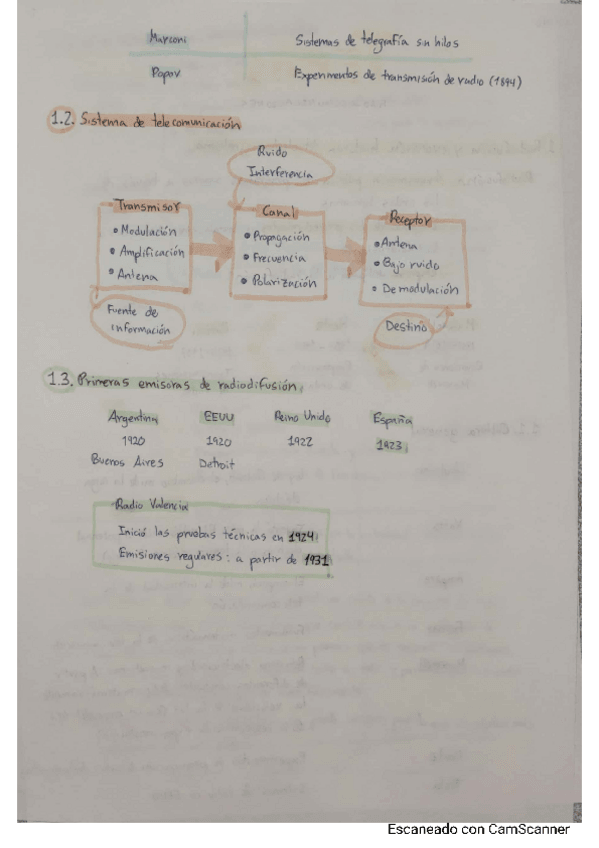 Marconi Sistemas de telegrafía sin hilos
Popov Experimentos de transmisión de radio (1894)
1.2. Sistema de telecomunicación
Ruido
Interferencia
Transmisor
• Modulación
• Amplificación
• Antena
Canal
• Propagación
• Frecuencia
• Polarización
Receptor
• Antena
• Bajo ruido
• Demodulación
Fuente de
información
Destino
1.3. Primeras emisoras de radiodifusión
Argentina EEUU Reino Unido España
1920 1920 1922 1923
Buenos Aires Detroit
Radio Valencia
Inició las pruebas técnicas en 1924
Emisiones regulares: a partir de 1931
Escaneado con CamScanner